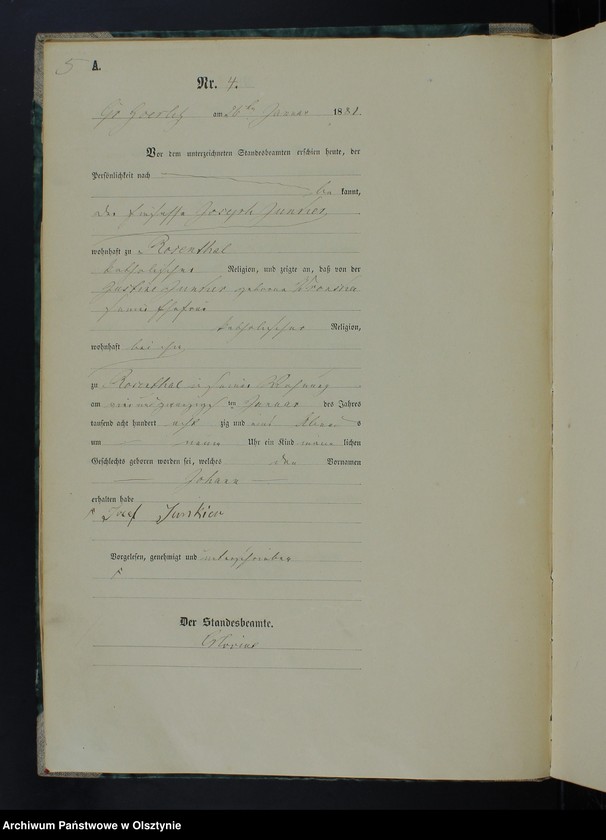 5 A.
Nr. 4.
Gr Goerlitz am 26ten Januar 1881.
Vor dem unterzeichneten Standesbeamten erschien heute, der
Persönlichkeit nach
be kannt,
der Joseph
wohnhaft zu Rosenthal
katholischer Religion, und zeigte an, daß von der
Justine geborene
seiner Ehefrau
katholischer Religion,
wohnhaft bei ihm
zu Rosenthal in seiner Wohnung
am ten Januar des Jahres
tausend acht hundert acht zig und eins Abends
um neun Uhr ein Kind männ lichen
Geschlechts geboren worden sei, welches den Vornamen
Johann
erhalten habe
Josef Junkier
Vorgelesen, genehmigt und unterschrieben
Der Standesbeamte.
Archiwum Państwowe w Olsztynie